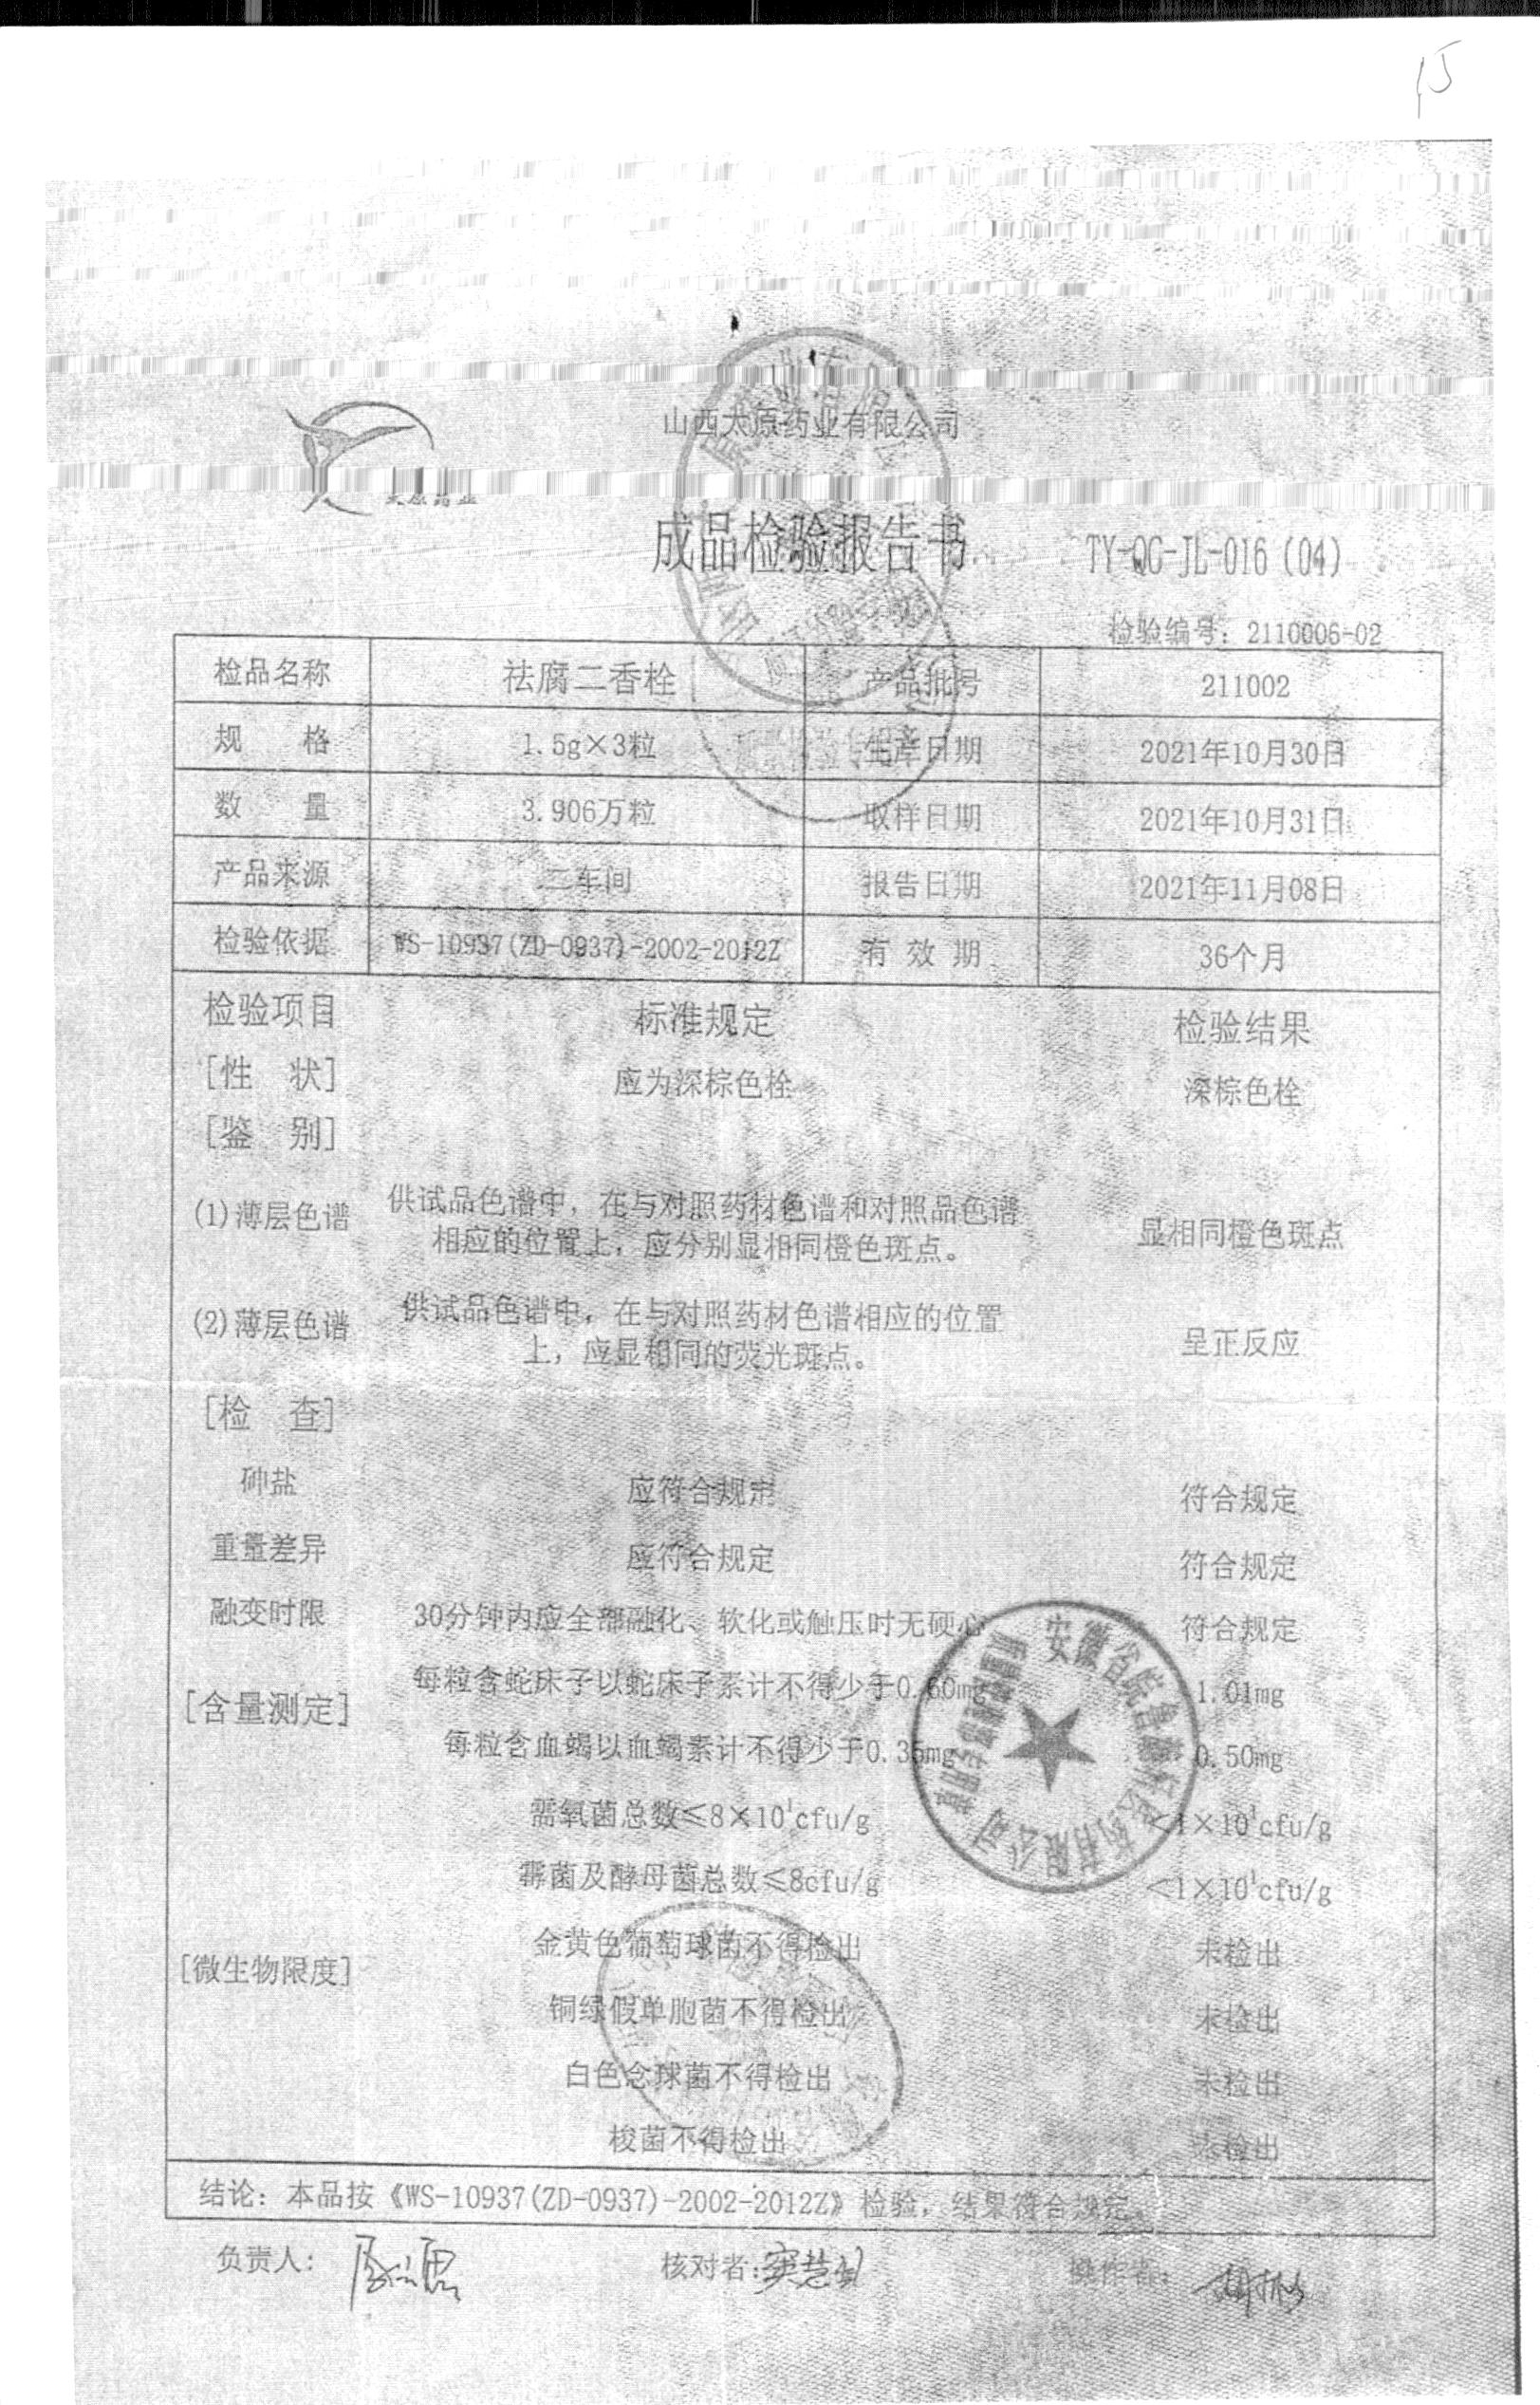 15
山西太原药业有限公司
太原药业
成品检验报告书 TY-QC-JL-016(04)
检验编号：2110006-02
检品名称 祛腐二香栓 产品批号 211002
规 格 1.5g×3粒 生产日期 2021年10月30日
数 量 3.906万粒 取样日期 2021年10月31日
产品来源 二车间 报告日期 2021年11月08日
检验依据 WS-10937(ZD-0937)-2002-2012Z 有 效 期 36个月
检验项目 标准规定 检验结果
[性 状] 应为深棕色栓 深棕色栓
[鉴 别]
(1)薄层色谱 供试品色谱中，在与对照药材色谱和对照品色谱
相应的位置上，应分别显相同橙色斑点。 显相同橙色斑点
(2)薄层色谱 供试品色谱中，在与对照药材色谱相应的位置
上，应显相同的荧光斑点。 呈正反应
[检 查]
砷盐 应符合规定 符合规定
重量差异 应符合规定 符合规定
融变时限 30分钟内应全部融化、软化或触压时无硬心 符合规定
[含量测定] 每粒含蛇床子以蛇床子素计不得少于0.60mg 1.01mg
每粒含血竭以血竭素计不得少于0.35mg 0.50mg
需氧菌总数≤8×10¹cfu/g <1×10¹cfu/g
霉菌及酵母菌总数≤8cfu/g <1×10¹cfu/g
金黄色葡萄球菌不得检出 未检出
[微生物限度]
铜绿假单胞菌不得检出 未检出
白色念球菌不得检出 未检出
梭菌不得检出 未检出
结论：本品按《WS-10937(ZD-0937)-2002-2012Z》检验，结果符合规定。
负责人： 核对者： 操作者：